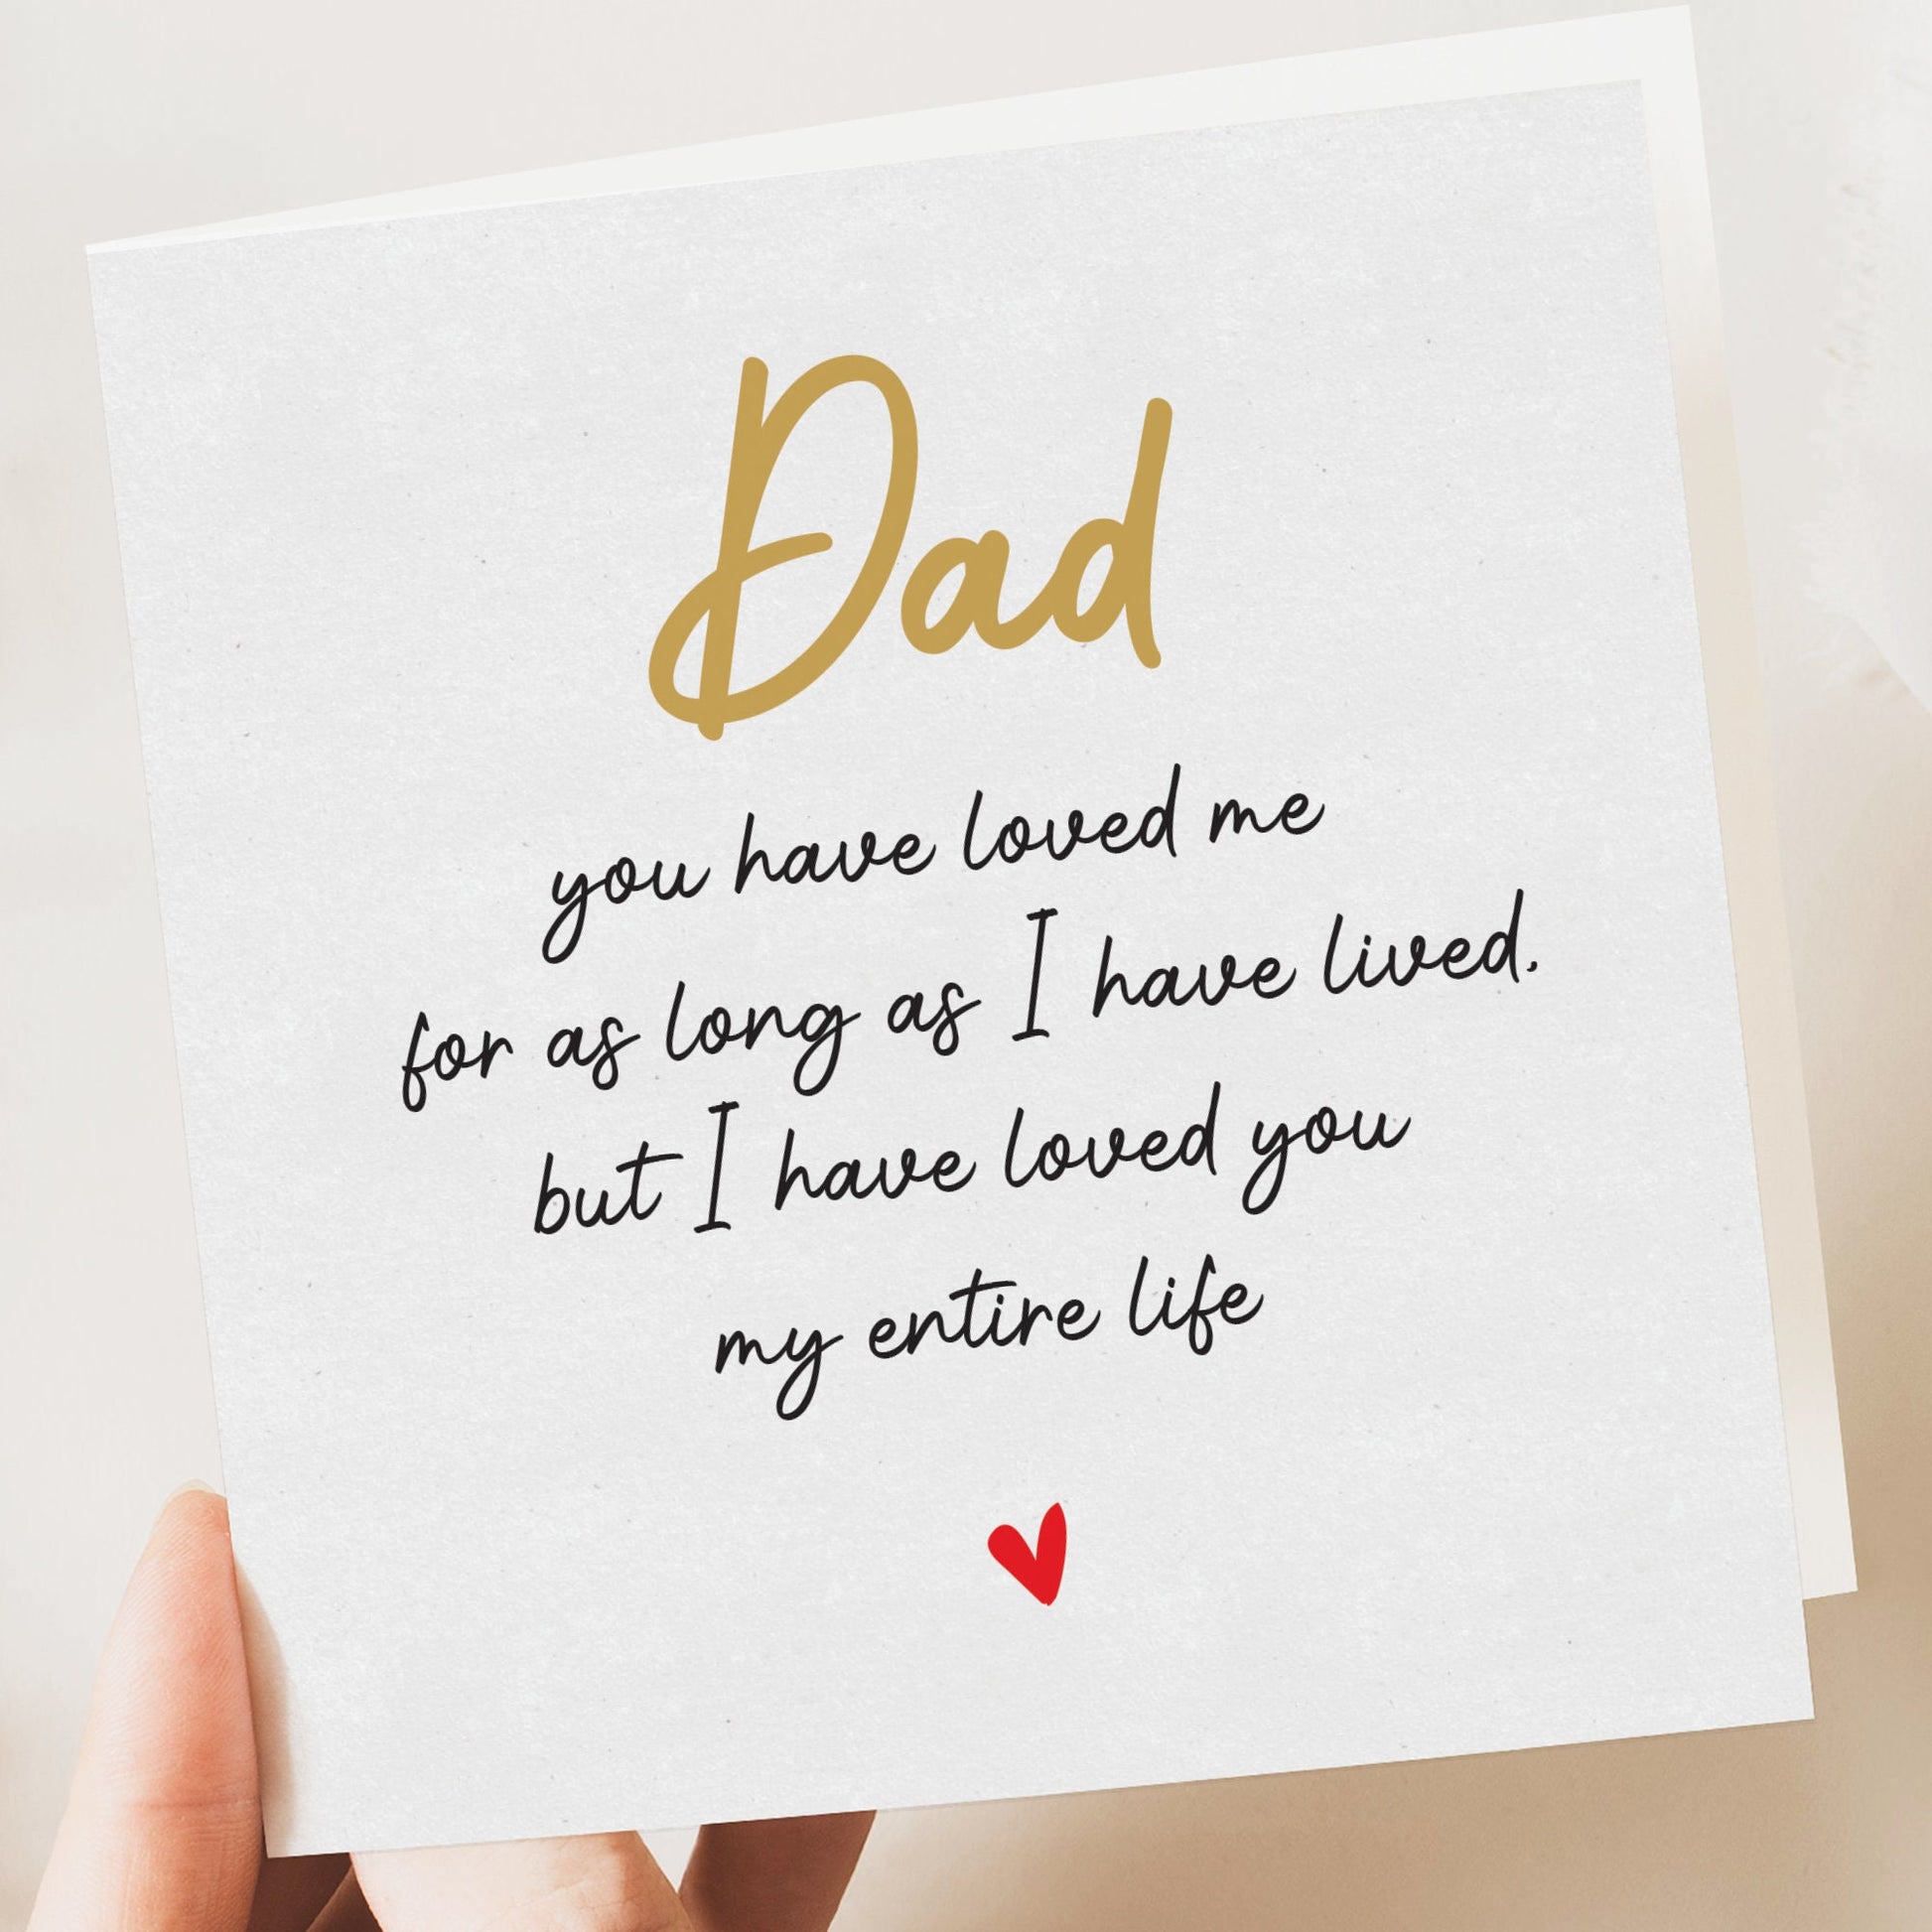 Dad
you have loved me
for as long as I have lived,
but I have loved you
my entire life